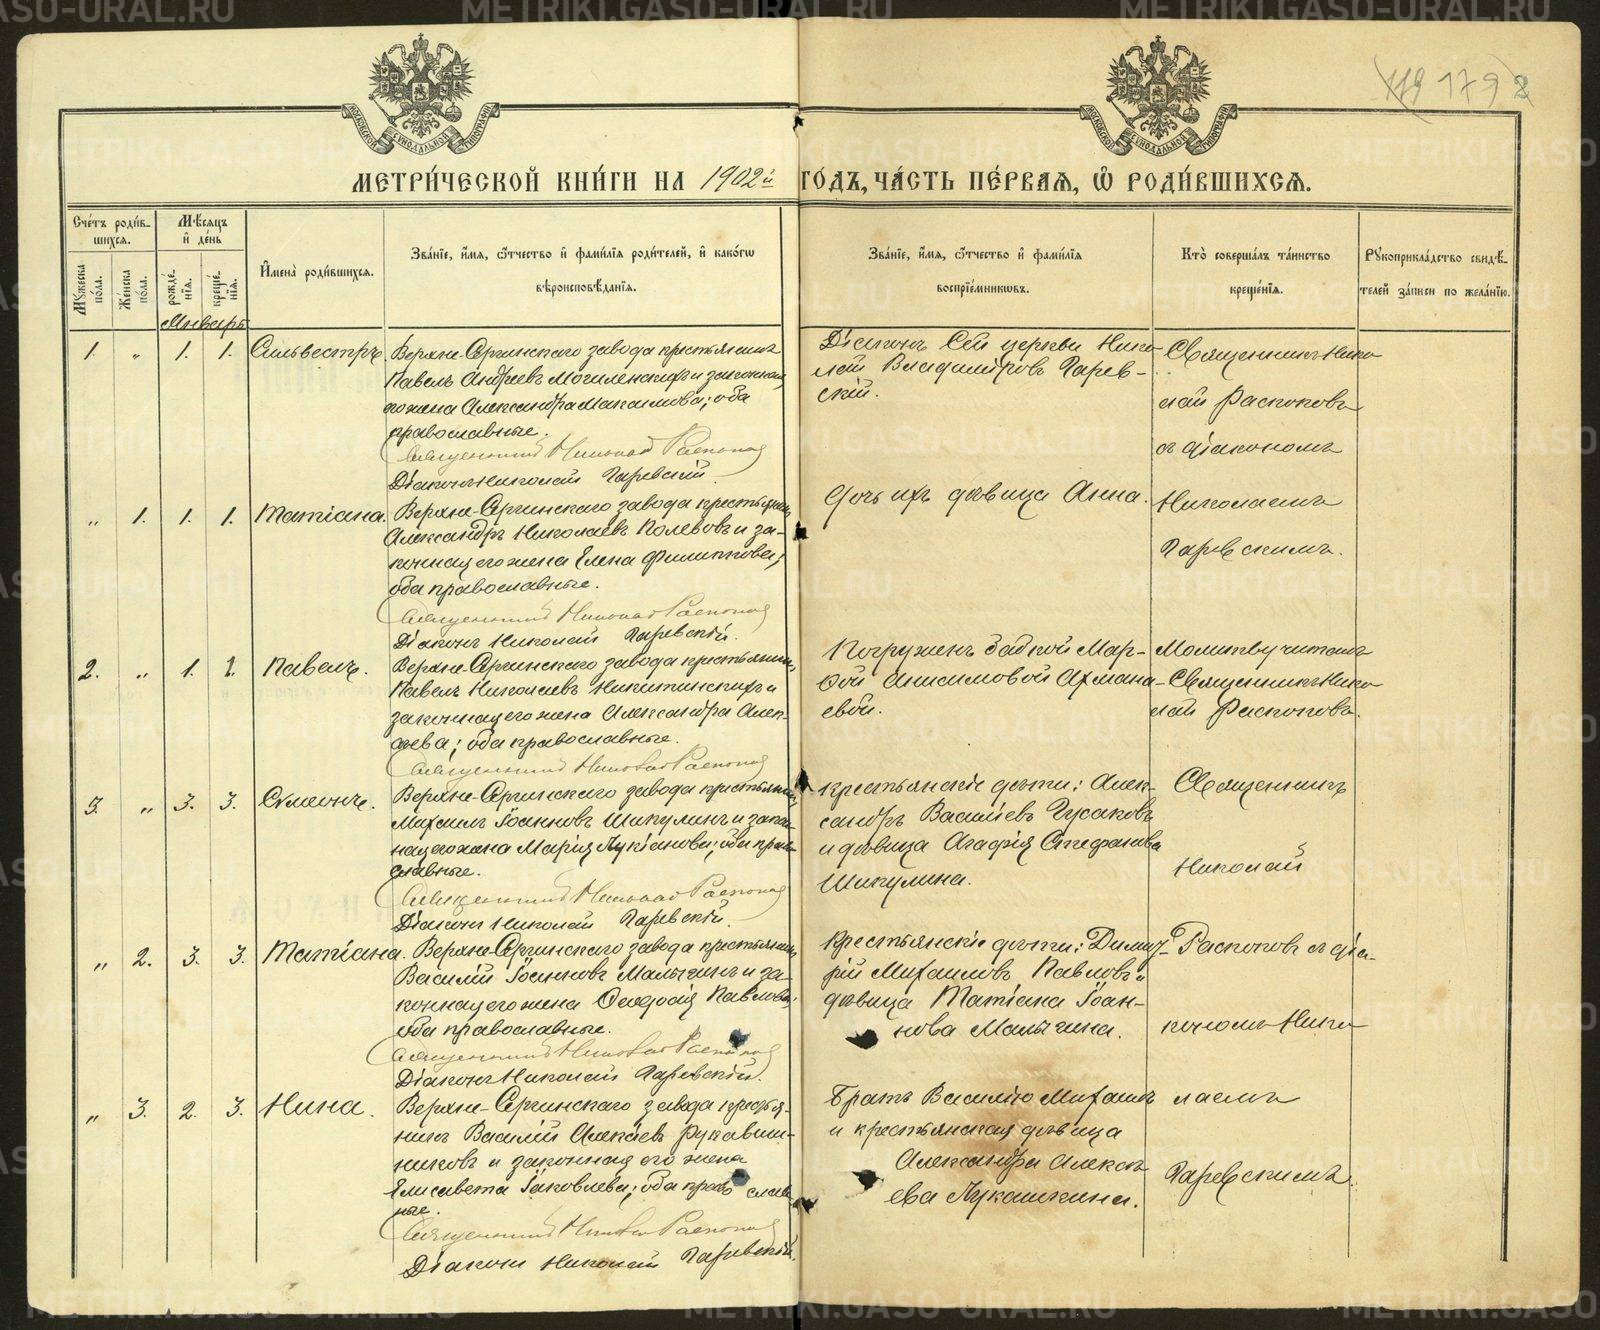 METRIKI.GASO-URAL.RU
179 2
МОСКОВСКОЙ СѴНОДАЛЬНОЙ ТИПОГРАФІИ
МОСКОВСКОЙ СѴНОДАЛЬНОЙ ТИПОГРАФІИ
МЕТРИ́ЧЕСКОЙ КНИ́ГИ НА 1902й ГОДЪ, ЧА́СТЬ ПЕ́РВАЯ, Ѡ҆ РОДИ́ВШИХСЯ.
Сче́тъ роди́в-
шихся.
Мꙋ́жеска по́ла.
Же́нска по́ла.
Мѣ́сяцъ
и҆ де́нь
рожде́нїя.
креще́нїя.
И҆мена̀ роди́вшихся.
Зва́нїе, и҆́мя, ѻ҆́тчество и҆ фами́лїя роди́телей, и҆ како́гѡ
вѣроисповѣ́данїя.
Зва́нїе, и҆́мя, ѻ҆́тчество и҆ фами́лїя
воспрїе́мникѡвъ.
Кто̀ соверша́лъ та́инство
креще́нїя.
Рꙋкоприкла́дство свидѣ́-
телей за́писи по жела́нїю.
Январь
1. „ 1. 1. Сильвестръ. Верхне-Сергинскаго завода крестьянинъ
Павелъ Андреевъ Могиленскихъ и законная
его жена Александра Максимова; оба
православные.
Священникъ Николай Распопов
Діаконъ Николай Гаревскій.
Діаконъ Сей церкви Нико-
лай Владиміровъ Гарев-
скій.
Священникъ Нико
лай Распоповъ
съ діакономъ
„ 1. 1. 1. Татіана. Верхне-Сергинскаго завода крестьянинъ
Александръ Николаевъ Полевовъ и за-
конная его жена Елена Филиппова;
оба православные.
Священникъ Николай Распопов
Діаконъ Николай Гаревскій.
Дочь ихъ дѣвица Анна.
Николаемъ
Гаревскимъ.
2. „ 1. 1. Павелъ. Верхне-Сергинскаго завода крестьянинъ
Павелъ Николаевъ Никитинскихъ и
законная его жена Александра Алек-
сѣева; оба православные.
Священникъ Николай Распопов
Погруженъ бабкой Мар-
ѳой Анисимовой
евой.
Молитву читалъ
Священникъ Нико
лай Распоповъ.
3. „ 3. 3. Сѵмеонъ. Верхне-Сергинскаго завода крестьянинъ
Михаилъ Іоанновъ Шикулинъ и закон-
ная его жена Марія Лукіанова; оба право-
славные.
Священникъ Николай Распопов
Діаконъ Николай Гаревскій.
Крестьянскіе дѣти: Алек-
сандръ Васильевъ Гусаковъ
и дѣвица Агафія Стефанова
Шикулина.
Священникъ
Николай
„ 2. 3. 3. Татіана. Верхне-Сергинскаго завода крестьянинъ
Василій Іоанновъ Малыгинъ и за-
конная его жена Ѳеодосія Павлова;
оба православные.
Священникъ Николай Распопов
Діаконъ Николай Гаревскій.
Крестьянскіе дѣти: Димит-
рій Михаиловъ Павловъ и
дѣвица Татіана Іоан-
нова Малыгина.
Распоповъ съ діа-
кономъ Нико
„ 3. 2. 3. Нина. Верхне-Сергинскаго завода крестья-
нинъ Василій Алексѣевъ Рукавиш-
никовъ и законная его жена
Елисавета Іаковлева; оба право слав
ные.
Священникъ Николай Распопов
Діаконъ Николай Гаревскій.
Братъ Василію Михаилъ
и крестьянская дѣвица
Александра Алексѣ-
ева Лукашкина.
лаемъ
Гаревскимъ.